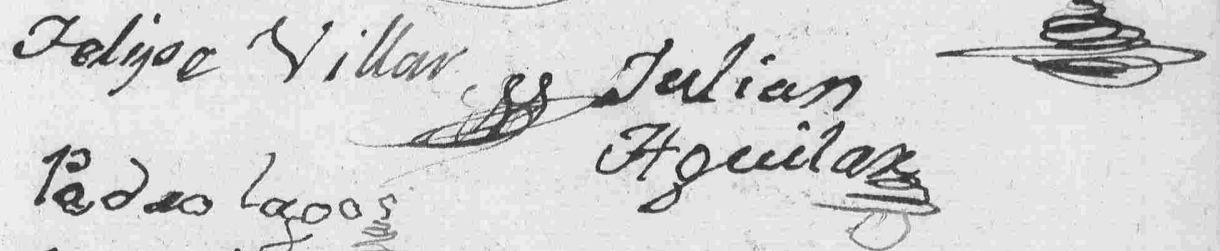 Felipe Villar
Julian
Aguilar
Pedro Lagos